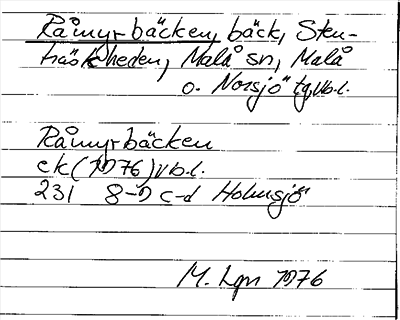 Råmyrbäcken, bäck, Sten-
träskheden, Malå sn, Malå
o. Norsjö tg, Vb.l.
Råmyrbäcken
ek (1976) Vb.l.
231 8-9 c-d Holmsjö
M. Lgn 1976